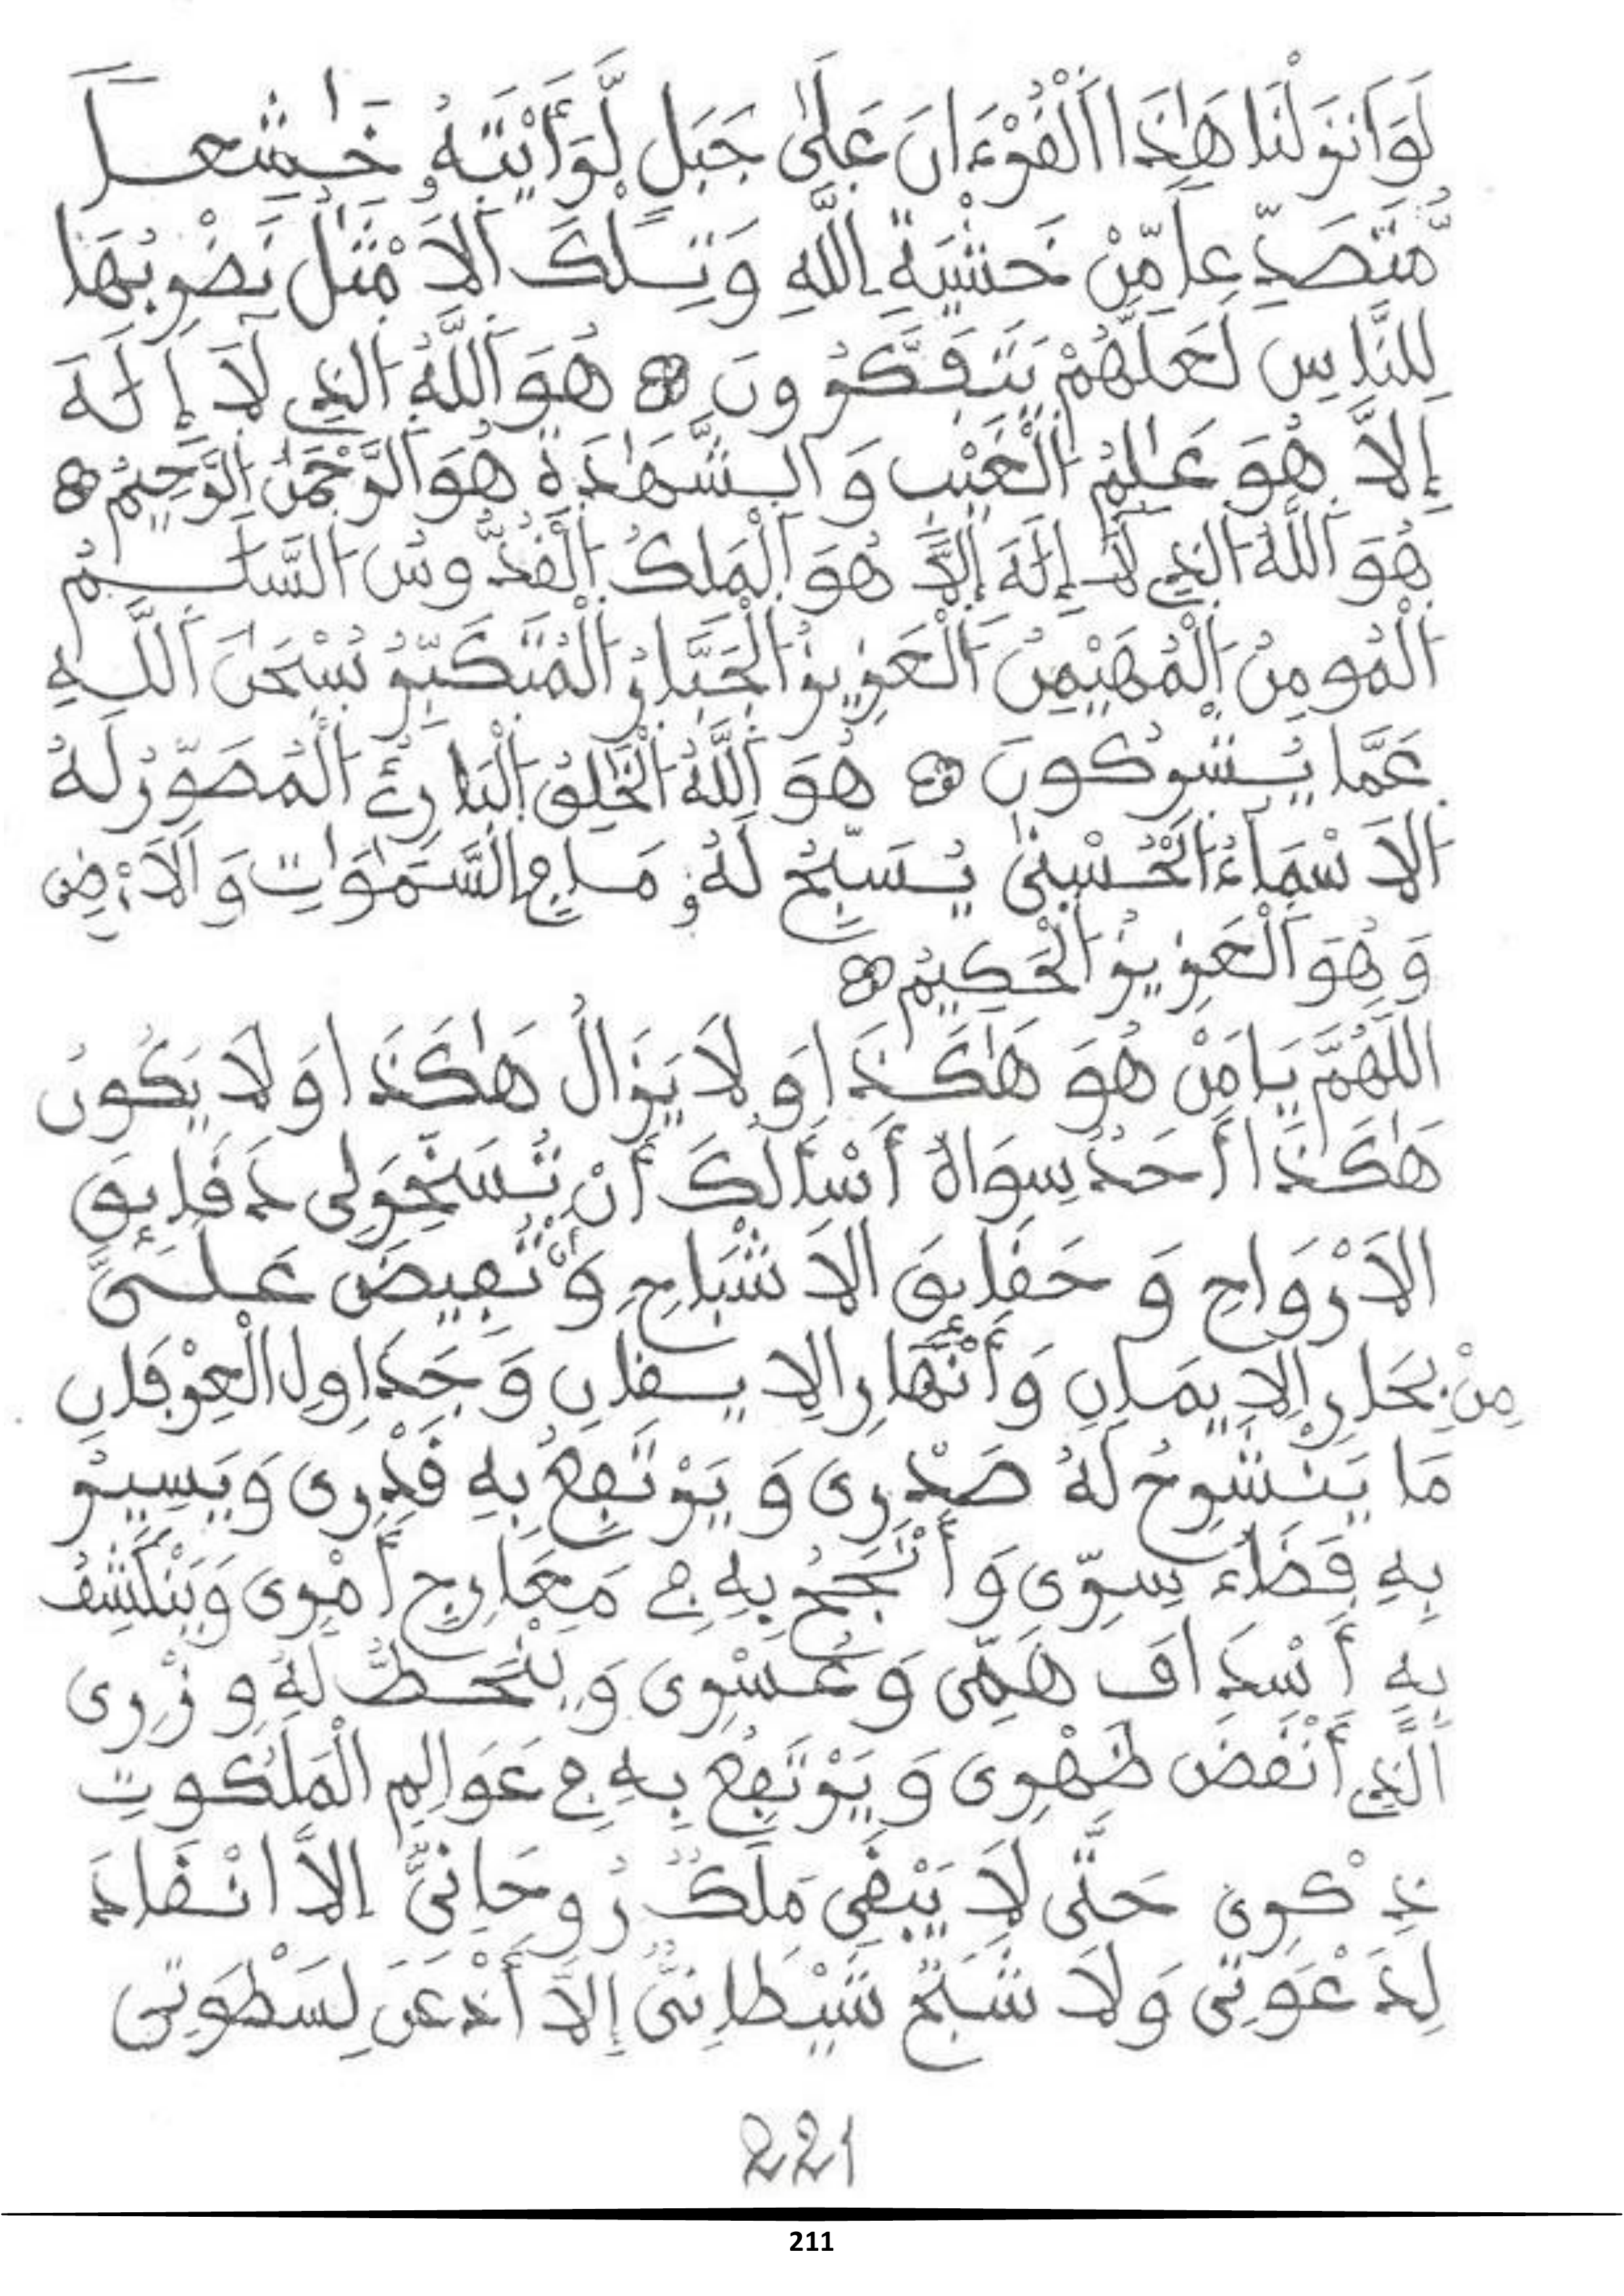 لَوَ اَنزَلْنَا هَٰذَا اَلْقُرْءَانَ عَلَىٰ جَبَلٍ لَّرَأَيْتَهُۥ خَٰشِعاً
مُّتَصَدِّعاً مِّنْ خَشْيَةِ اِللَّهِ وَتِلْكَ اَلَامْثَٰلُ نَضْرِبُهَا
لِلنَّاسِ لَعَلَّهُمْ يَتَفَكَّرُونَ ۝ هُوَ اَللَّهُ اُلذِي لَا إِلَٰهَ
إِلَّا هُوَ عَٰلِمُ اُلْغَيْبِ وَالشَّهَٰدَةِ هُوَ اَلرَّحْمَٰنُ اُلرَّحِيمُ ۝
هُوَ اَللَّهُ اُلذِي لَا إِلَٰهَ إِلَّا هُوَ اَلْمَلِكُ اُلْقُدُّوسُ السَّلَٰمُ
اُلْمُومِنُ اُلْمُهَيْمِنُ اُلْعَزِيزُ اُلْجَبَّارُ اُلْمُتَكَبِّرُ سُبْحَٰنَ اَللَّهِ
عَمَّا يُشْرِكُونَ ۝ هُوَ اَللَّهُ اُلْخَٰلِقُ اُلْبَارِئُ اُلْمُصَوِّرُ لَهُ
اُلَاسْمَاءُ اُلْحُسْنَىٰ يُسَبِّحُ لَهُۥ مَا فِي اِلسَّمَٰوَٰتِ وَالَارْضِ
وَهُوَ اَلْعَزِيزُ اُلْحَكِيمُ ۝
اللَّهُمَّ يَا مَنْ هُوَ هَٰكَذَا وَلَا يَزَالُ هَٰكَذَا وَلَا يَكُونُ
هَٰكَذَا أَحَدٌ سِوَاهُ أَسْأَلُكَ أَنْ تُسَخِّرَ لِى دَقَايِقَ
الَارْوَاحِ وَحَقَايِقَ الَاشْبَاحِ وَأَنْ تُفِيضَ عَلَىَّ
مِنْ بِحَارِ الِايمَانِ وَأَنْهَارِ الِايقَانِ وَجَدَاوِلِ الْعِرْفَانِ
مَا يَنْشَرِحُ لَهُ صَدْرِى وَيَرْتَفِعُ بِهِ قَدْرِى وَيَسِيرُ
بِهِ فَضَاءَ سِرِّى وَأَنْجَحُ بِهِ فِي مَعَارِجِ أَمْرِى وَيَنْكَشِفُ
بِهِ أَسْدَافَ هَمِّى وَعُسْرِى وَيَنْحَطُّ لَهُ وِزْرِى
الَّذِي أَنْقَضَ ظَهْرِى وَيَرْتَفِعُ بِهِ فِي عَوَالِمِ الْمَلَكُوتِ
ذِكْرِى حَتَّى لَا يَبْقَى مَلَكٌ رُوحَانِىٌّ إِلَّا انْقَادَ
لِدَعْوَتِى وَلَا شَبَحٌ شَيْطَانِىٌّ إِلَّا أَذْعَنَ لِسَطْوَتِى
221
211